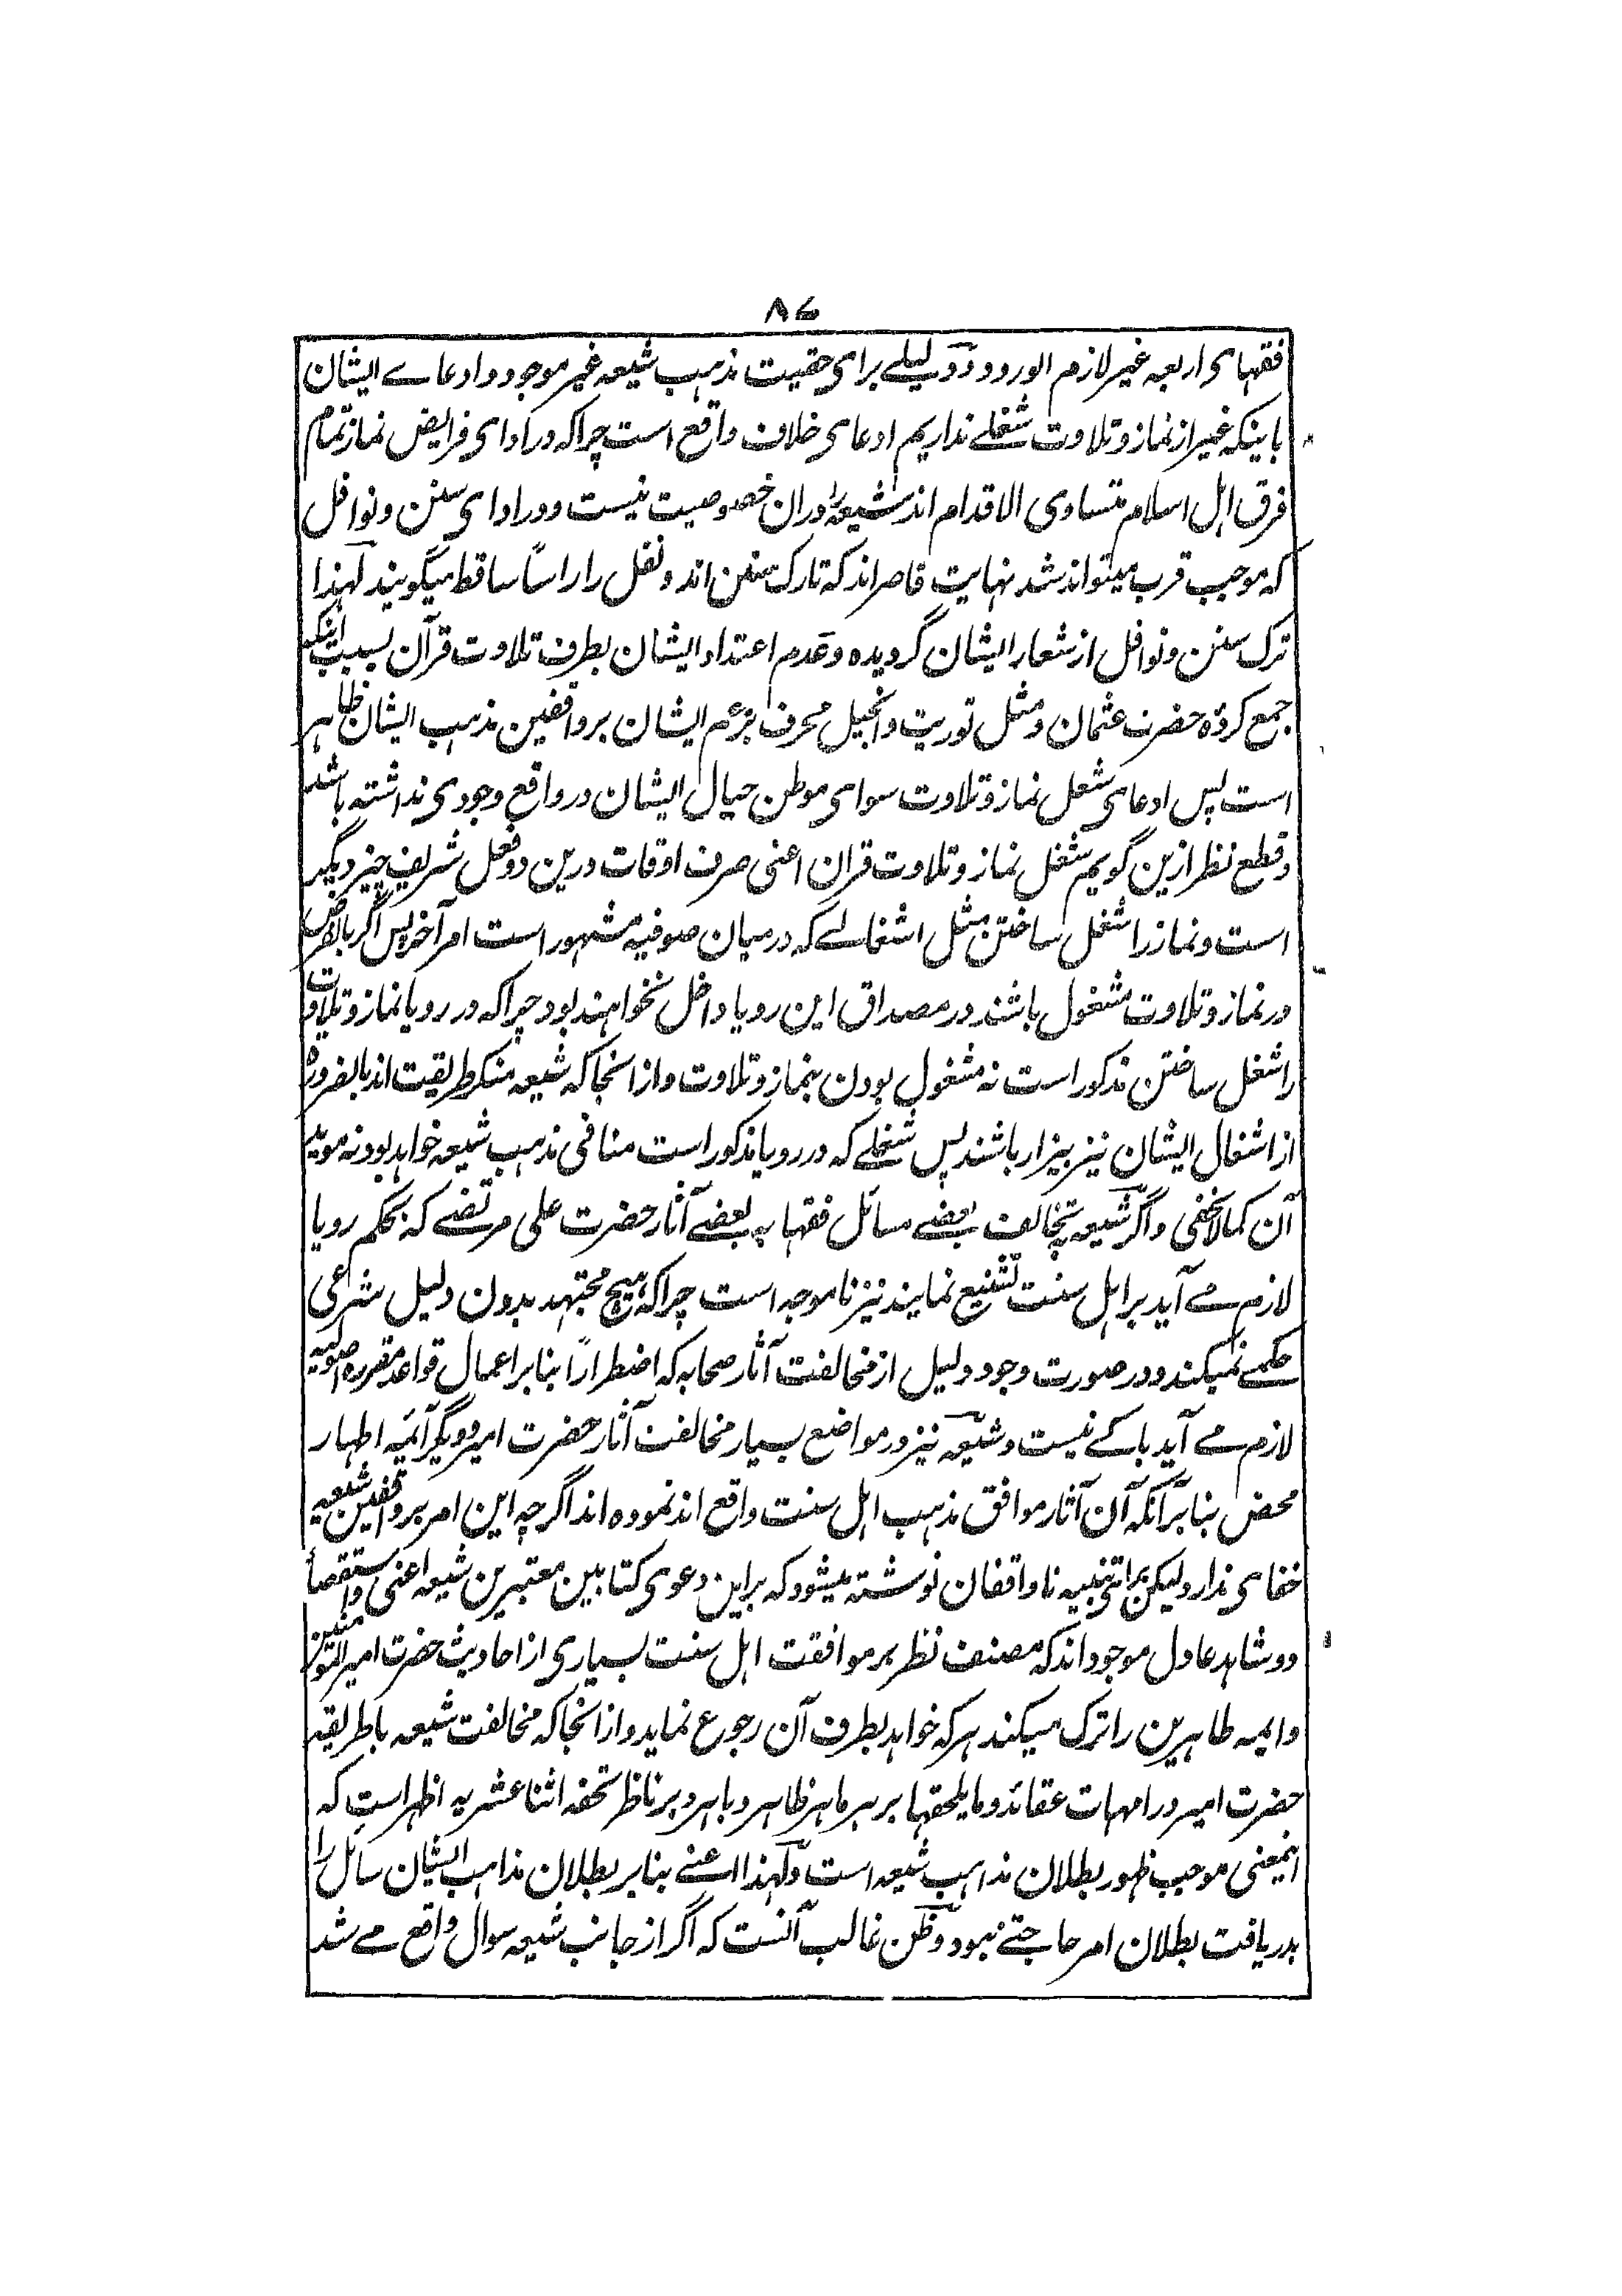 ۸۶
فقهای اربعه غیر لازم الورود و دلیلے برای حقیت مذهب شیعه غیر موجود و ادعاے ایشان
باینکه غیر از نماز و تلاوت شغلے نداریم ادعای خلاف واقع است چراکه در ادای فرایض نماز تمام
فرق اهل اسلام متساوی الاقدام اند شیعه را دران خصوصیت نیست و در ادای سنن و نوافل
که موجب قرب میتواند شد نهایت قاصر اند که تارک سنن اند و نفل را راساً ساقط میگویند لهذا
ترک سنن و نوافل از شعار ایشان گردیده و عدم اعتداد ایشان بطرف تلاوت قرآن بسبب اینکه
جمع کرده حضرت عثمان و مثل توریت و انجیل محرف بزعم ایشان بر واقفین مذهب ایشان ظاهر
است پس ادعای شغل نماز و تلاوت سوای موطن خیال ایشان در واقع وجودی نداشته باشد
و قطع نظر ازین گویم شغل نماز و تلاوت قران اعنی صرف اوقات درین دو فعل شریف چیز دیگر
است و نماز را شغل ساختن مثل اشغالے که درمیان صوفیه مشهور است امر آخر پس اگر بالفرض
در نماز و تلاوت مشغول باشند در مصداق این رویا داخل نخواهند بود چراکه در رویا نماز و تلاوت
را شغل ساختن مذکور است نه مشغول بودن بنماز و تلاوت و از انجا که شیعه منکر طریقت اند بالضرورة
از اشغال ایشان نیز بیزار باشند پس شغلے که در رویا مذکور است منافی مذهب شیعه خواهد بود نه موید
آن کمالا یخفی و اگر شیعه بمخالفت بعضے مسائل فقها به بعضے آثار حضرت علی مرتضے که بحکم رویا
لازم مے آید بر اهل سنت تشنیع نمایند نیز ناموجه است چراکه هیچ مجتهد بدون دلیل شرعی
حکمے نمیکند و در صورت وجود دلیل از مخالفت آثار صحابه که اضطراراً بنابر اعمال قواعد مقرره اصولیه
لازم مے آید باکے نیست و شیعه نیز در مواضع بسیار مخالفت آثار حضرت امیر و دیگر آئمه اطهار
محض بنابر آنکه آن آثار موافق مذهب اهل سنت واقع اند نموده اند اگرچه این امر بر واقفین شیعه
خفای ندارد لیکن برای تنبیه ناواقفان نوشته میشود که براین دعوی کتابین معتبرین شیعه اعنی و استقصا
دو شاهد عادل موجود اند که مصنف نظر بر موافقت اهل سنت بسیاری از احادیث حضرت امیر المومنین
و ایمه طاهرین را ترک میکند هر که خواهد بطرف آن رجوع نماید و از انجا که مخالفت شیعه با طریقه
حضرت امیر در امهات عقائد و ما یلحقها بر هر ماهر ظاهر و باهر و بر ناظر تحفه اثنا عشریه اظهر است که
اینمعنی موجب ظهور بطلان مذاهب شیعه است و لهذا اعنے بنابر بطلان مذاهب ایشان سائل را
بدریافت بطلان امر حاجتے نبود و ظن غالب آنست که اگر از جانب شیعه سوال واقع مے شد